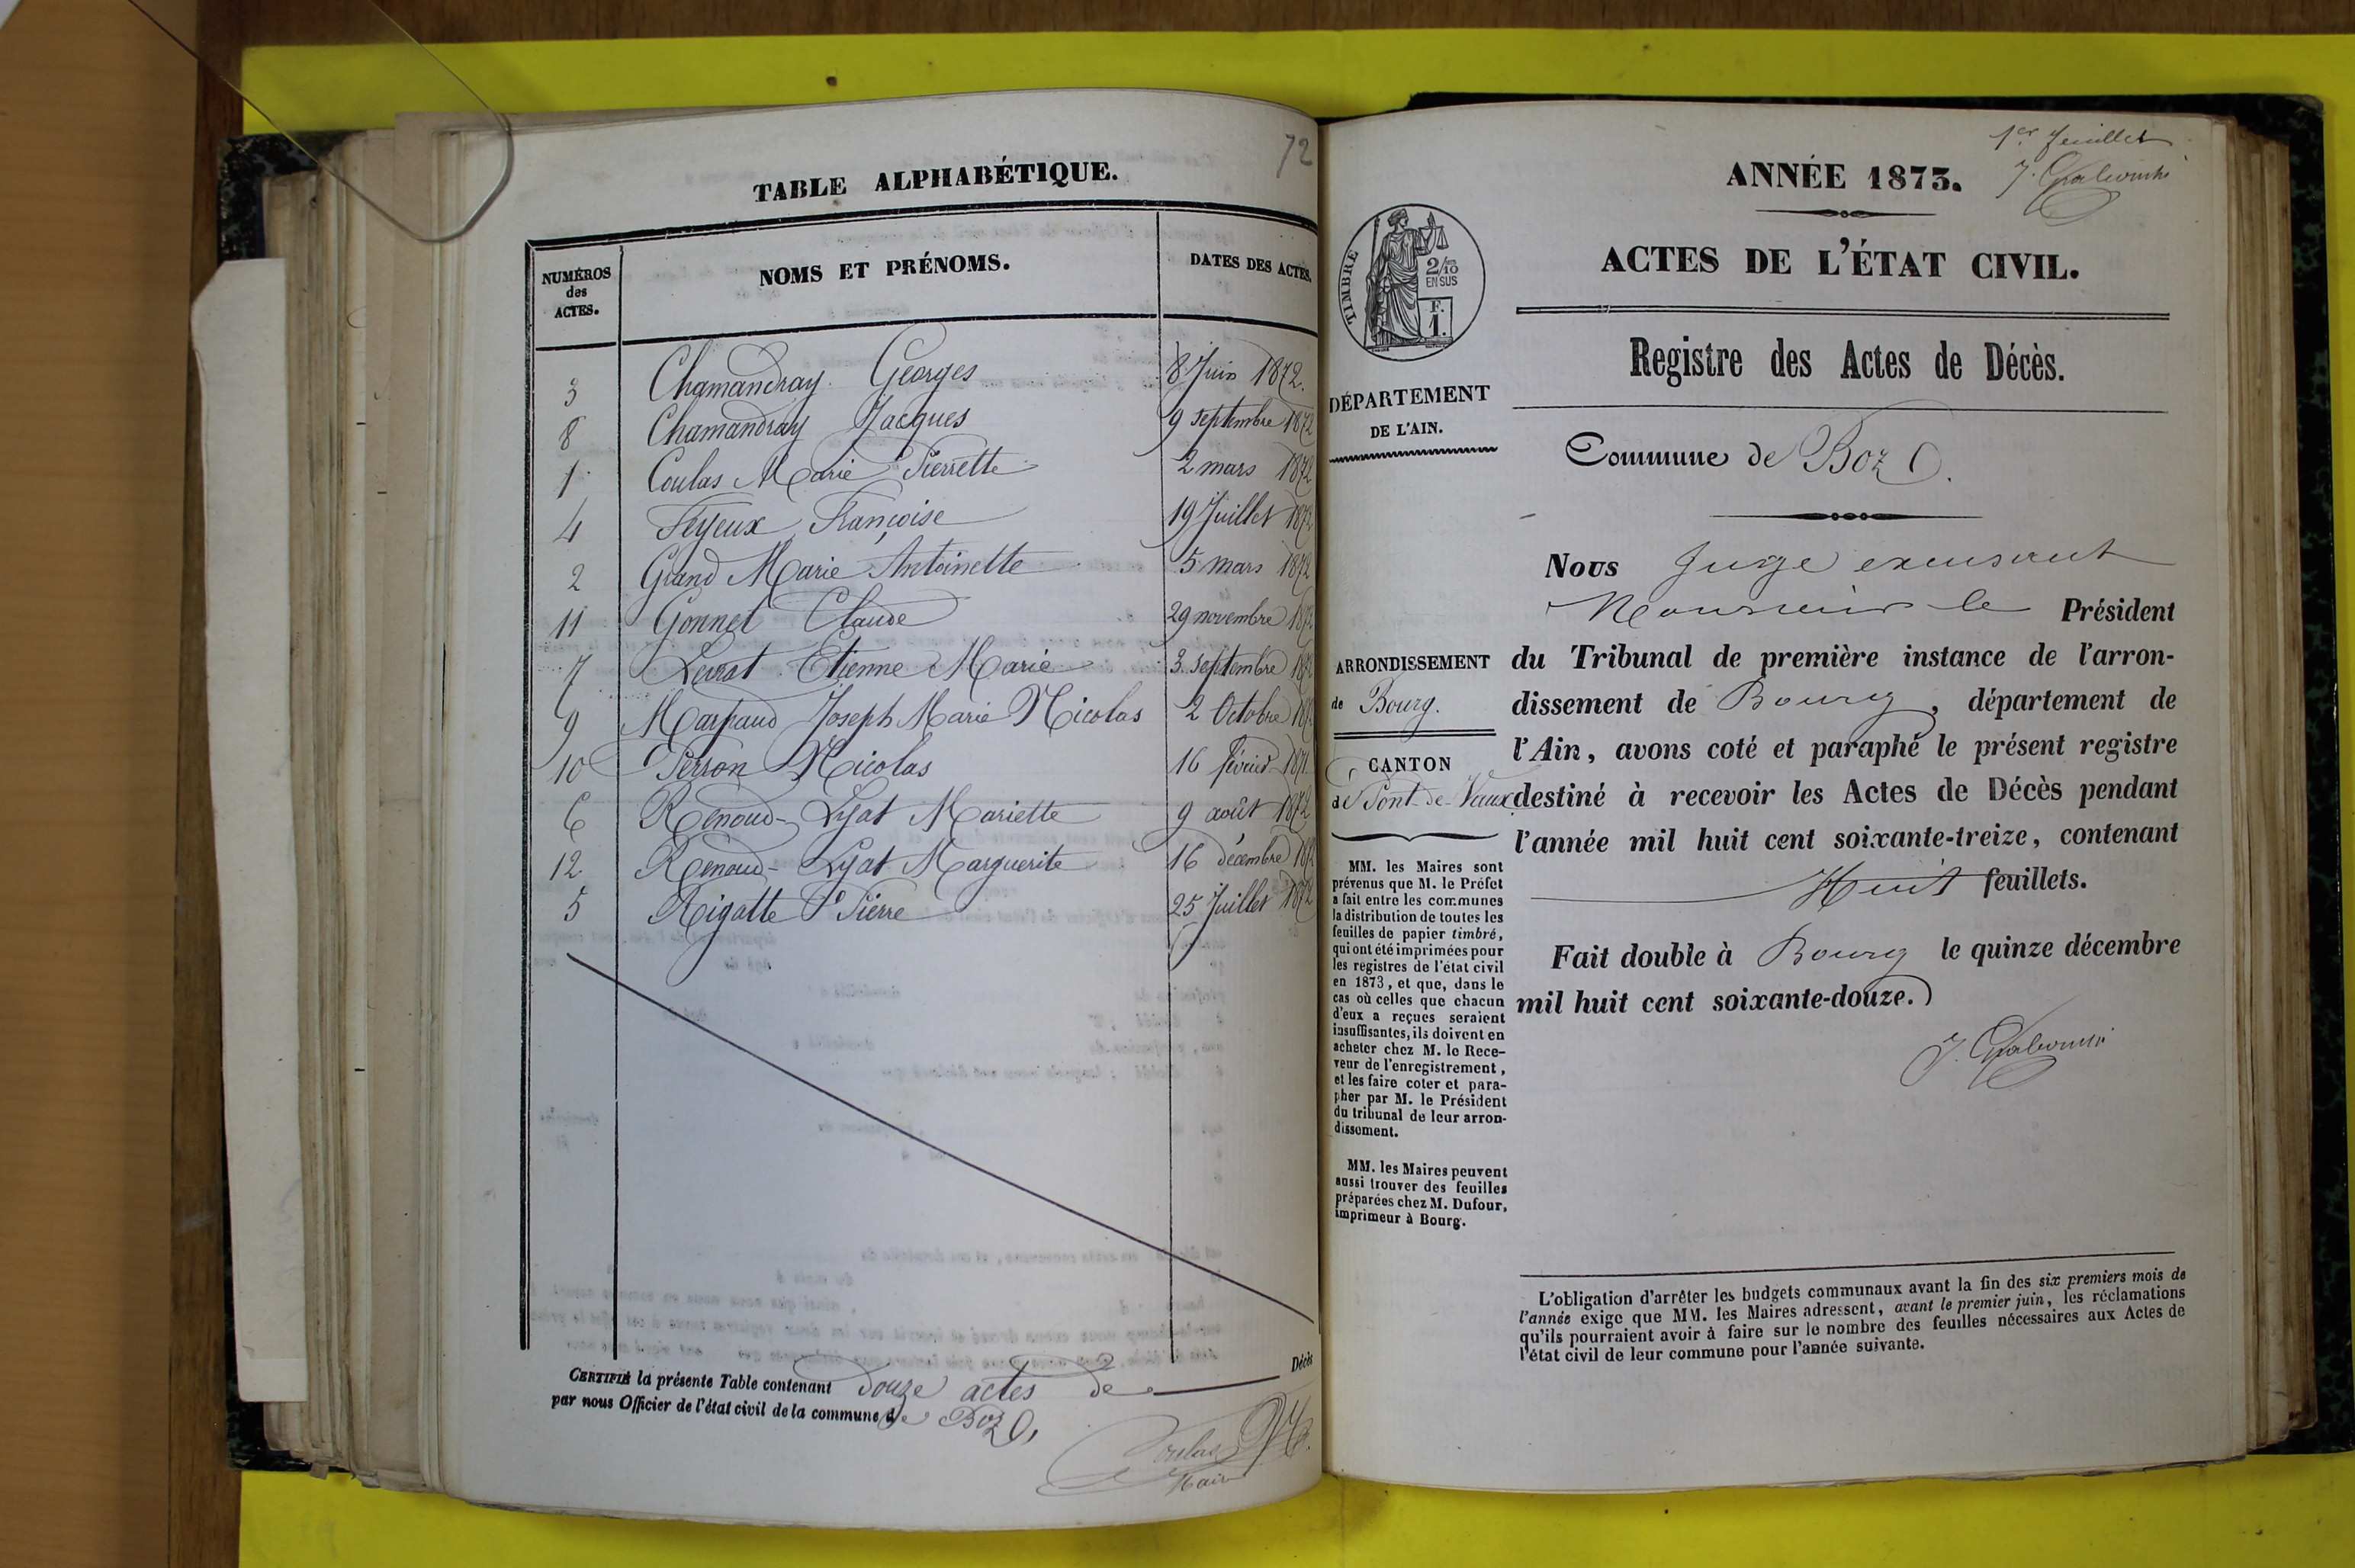 72
TABLE ALPHABÉTIQUE.
NUMÉROS des ACTES. NOMS ET PRÉNOMS. DATES DES ACTES.
3 Chamandray Georges 8 Juin 1872.
8 Chamandray Jacques 9 septembre 1872
1 Coulas Marie Pierrette 2 mars 1872
4 Feyeux Françoise 19 Juillet 1872
2 Grand Marie Antoinette 5 mars 1872
11 Gonnet Claude 29 novembre 1872
7 Levrat Etienne Marie 3 septembre 1872
9 Marpaud Joseph Marie Nicolas 2 Octobre
10 Perron Nicolas 16 février 1871
6 Renoud-Lyat Mariette 9 août 1872
12 Renoud-Lyat Marguerite 16 décembre 1872
5 Rigotte Pierre 25 Juillet 1872
CERTIFIÉ la présente Table contenant douze actes de Décès
par nous Officier de l'état civil de la commune de Boz
Coulas
Maire
1er feuillet
ANNÉE 1873.
ACTES DE L'ÉTAT CIVIL.
Registre des Actes de Décès.
Commune de Boz
TIMBRE
2/10
EN SUS
F.
1.
DÉPARTEMENT
DE L'AIN.
ARRONDISSEMENT
de Bourg.
CANTON
de Pont-de-Vaux
MM. les Maires sont
prévenus que M. le Préfet
a fait entre les communes
la distribution de toutes les
feuilles de papier timbré,
qui ont été imprimées pour
les registres de l'état civil
en 1873, et que, dans le
cas où celles que chacun
d'eux a reçues seraient
insuffisantes, ils doivent en
acheter chez M. le Rece-
veur de l'enregistrement,
et les faire coter et para-
pher par M. le Président
du tribunal de leur arron-
dissement.
MM. les Maires peuvent
aussi trouver des feuilles
préparées chez M. Dufour,
imprimeur à Bourg.
Nous Juge excusant
Monsieur le Président
du Tribunal de première instance de l'arron-
dissement de Bourg, département de
l'Ain, avons coté et paraphé le présent registre
destiné à recevoir les Actes de Décès pendant
l'année mil huit cent soixante-treize, contenant
Huit feuillets.
Fait double à Bourg le quinze décembre
mil huit cent soixante-douze.
L'obligation d'arrêter les budgets communaux avant la fin des six premiers mois de
l'année exige que MM. les Maires adressent, avant le premier juin, les réclamations
qu'ils pourraient avoir à faire sur le nombre des feuilles nécessaires aux Actes de
l'état civil de leur commune pour l'année suivante.